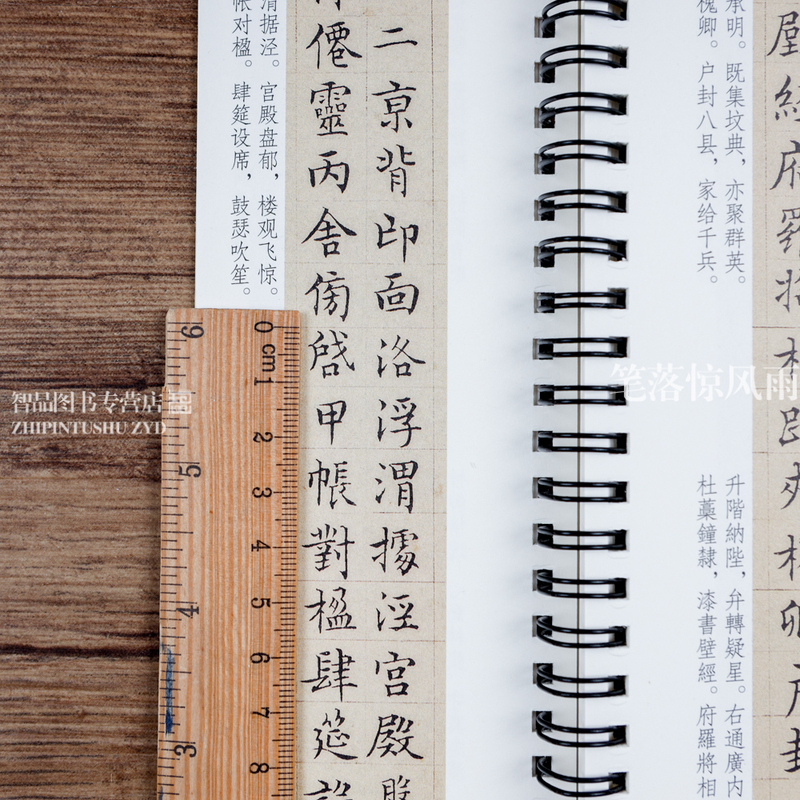 壁經府羅將相路俠槐卿戶封
承明。既集坟典，亦聚群英。
槐卿。户封八县，家给千兵。
升階納陛，弁轉疑星。右通廣内
杜藁鐘隸，漆書壁經。府羅將相
二京背邙面洛浮渭據涇宮殿
僊靈丙舍傍啓甲帳對楹肆筵設
渭据泾。宫殿盘郁，楼观飞惊。
帐对楹。肆筵设席，鼓瑟吹笙。
0 cm 1 2 3 4 5 6 7 8
6 5 4 3
智品图书专营店
ZHIPINTUSHU ZYD
笔落惊风雨